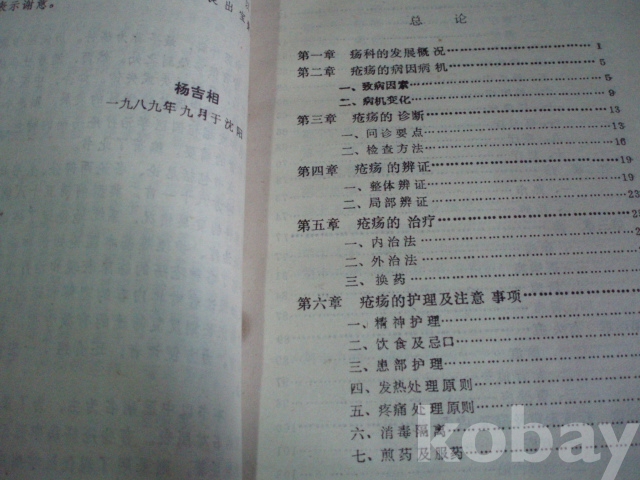 表示谢意。
杨吉相
一九八九年九月于沈阳
总 论
第一章 疡科的发展概况……1
第二章 疮疡的病因病机……5
一、致病因素……5
二、病机变化……9
第三章 疮疡的诊断……13
一、问诊要点……13
二、检查方法……16
第四章 疮疡的辨证……19
一、整体辨证……19
二、局部辨证……
第五章 疮疡的治疗……
一、内治法……
二、外治法……
三、换药……
第六章 疮疡的护理及注意事项……
一、精神护理……
二、饮食及忌口……
三、患部护理……
四、发热处理原则……
五、疼痛处理原则……
六、消毒隔离……
七、煎药及服药……
kobay